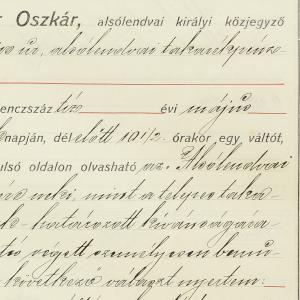 r Oszkár, alsólendvai királyi közjegyző
úr, alsólendvai takarékpénz-
lenczszáz tíz évi május
napján, dél előtt 10 1/2 órakor egy váltót,
ulsó oldalon olvasható az "Alsólendvai
neki, mint a telepes taka-
k határozott kívánságára
végett személyesen bemu-
következő választ nyertem: